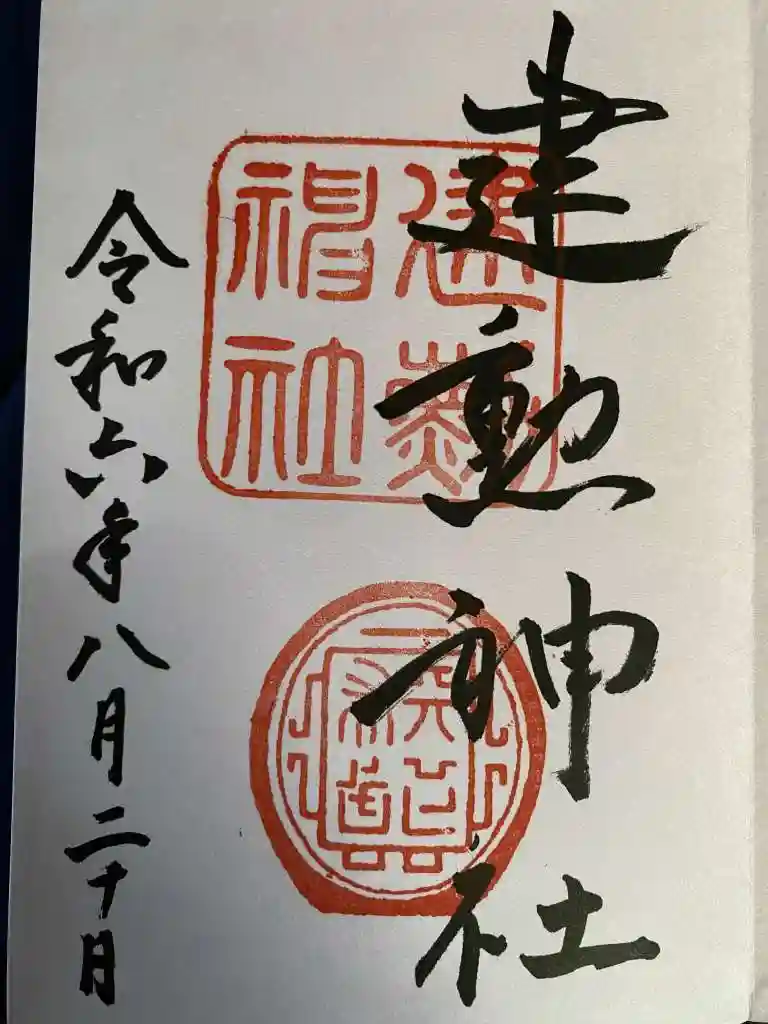 建勲神社
建勲
神社
令和六年八月二十日